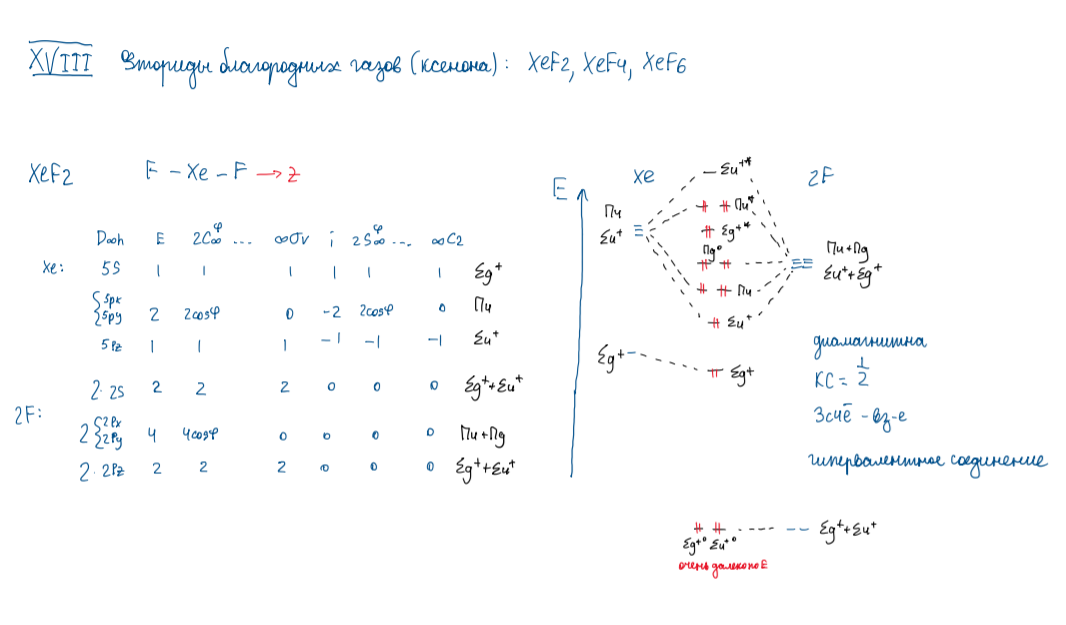 XVIII Фториды благородных газов (ксенона): XeF2, XeF4, XeF6
XeF2 F – Xe – F → z
D∞h E 2C∞^φ ... ∞σv i 2S∞^φ ... ∞C2
Xe: 5S 1 1 1 1 1 1 Σg+
{5px 5py 2 2cosφ 0 -2 2cosφ 0 Πu
5Pz 1 1 1 -1 -1 -1 Σu+
2F: 2·2S 2 2 2 0 0 0 Σg++Σu+
2{2Px 2Py 4 4cosφ 0 0 0 0 Πu+Πg
2·2Pz 2 2 2 0 0 0 Σg++Σu+
E Xe 2F
Σu+*
Πu Πu*
Σu+ Σg+*
Πg°
Πu+Πg
Σu++Σg+
Πu
Σu+
Σg+ Σg+
диамагнитна
КС = 1/2
3с4ē – вз-е
гипервалентное соединение
Σg++Σu+
Σg+° Σu+°
очень далеко по E